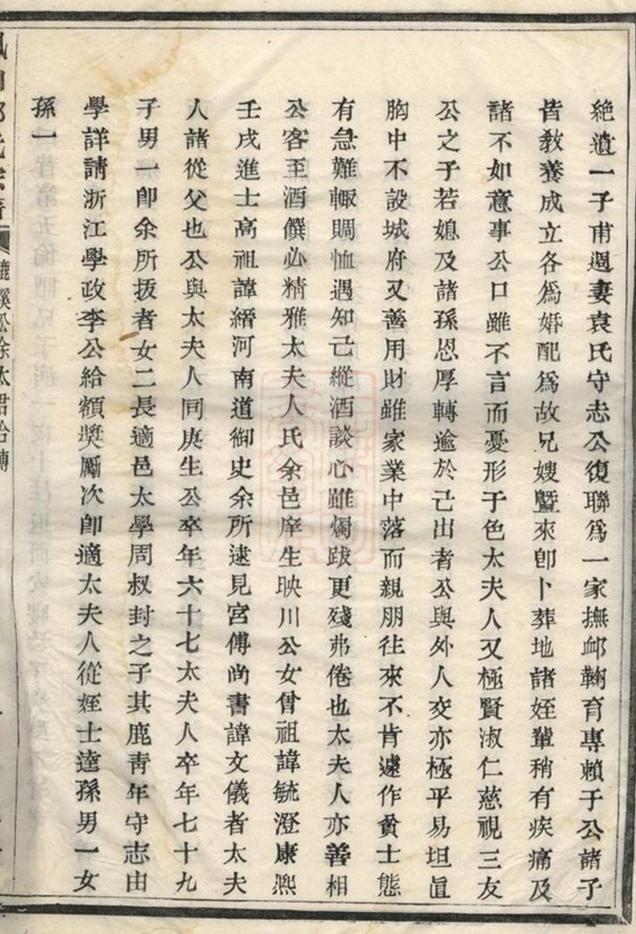 絶遺一子甫週妻袁氏守志公復聯爲一家撫邮鞠育專賴于公諸子
皆教養成立各爲婚配爲故兄嫂暨來卽卜葬地諸姪輩稍有疾痛及
諸不如意事公口雖不言而憂形于色太夫人又極賢淑仁慈視三友
公之子若媳及諸孫恩厚轉逾於己出者公與外人交亦極平易坦直
胸中不設城府又善用財雖家業中落而親朋往來不肯遽作貧士態
有急難輙賙恤遇知己縱酒談心雖燭跋更殘弗倦也太夫人亦善相
公客至酒饌必精雅太夫人氏余邑庠生映川公女曾祖諱毓澄康熙
壬戌進士高祖諱縉河南道御史余所逮見宮傅尚書諱文儀者太夫
人諸從父也公與太夫人同庚生公卒年六十七太夫人卒年七十九
子男一卽余所拔者女二長適邑太學周叔封之子其鹿青年守志由
學詳請浙江學政李公給額奬厲次卽適太夫人從姪士逵孫男一女
孫一